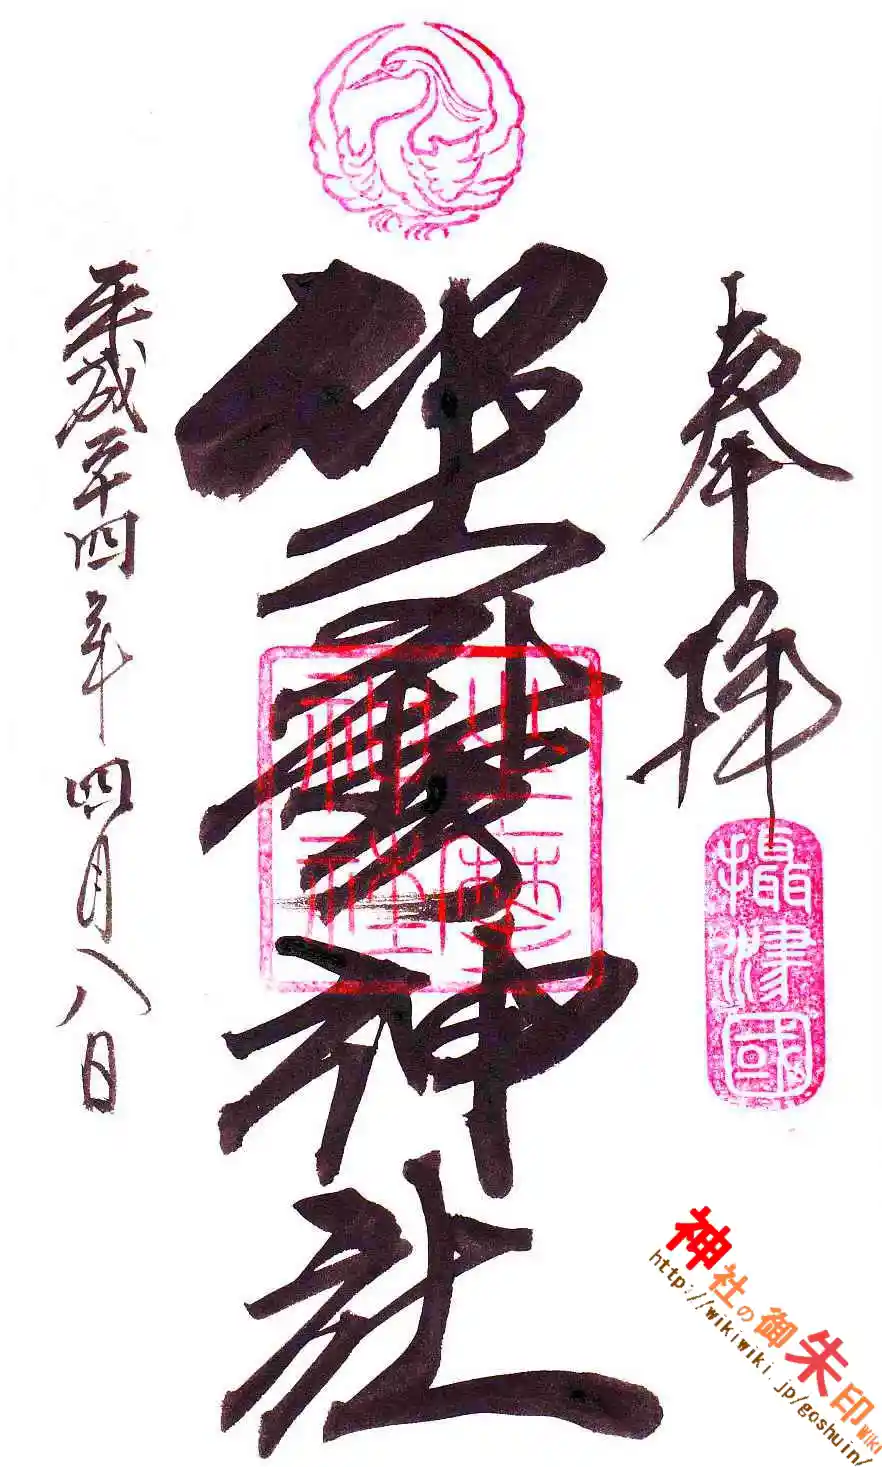 奉拝
攝津國
坐摩神社
坐摩
神社
平成二十四年四月八日
神社の御朱印Wiki
http://wikiwiki.jp/goshuin/